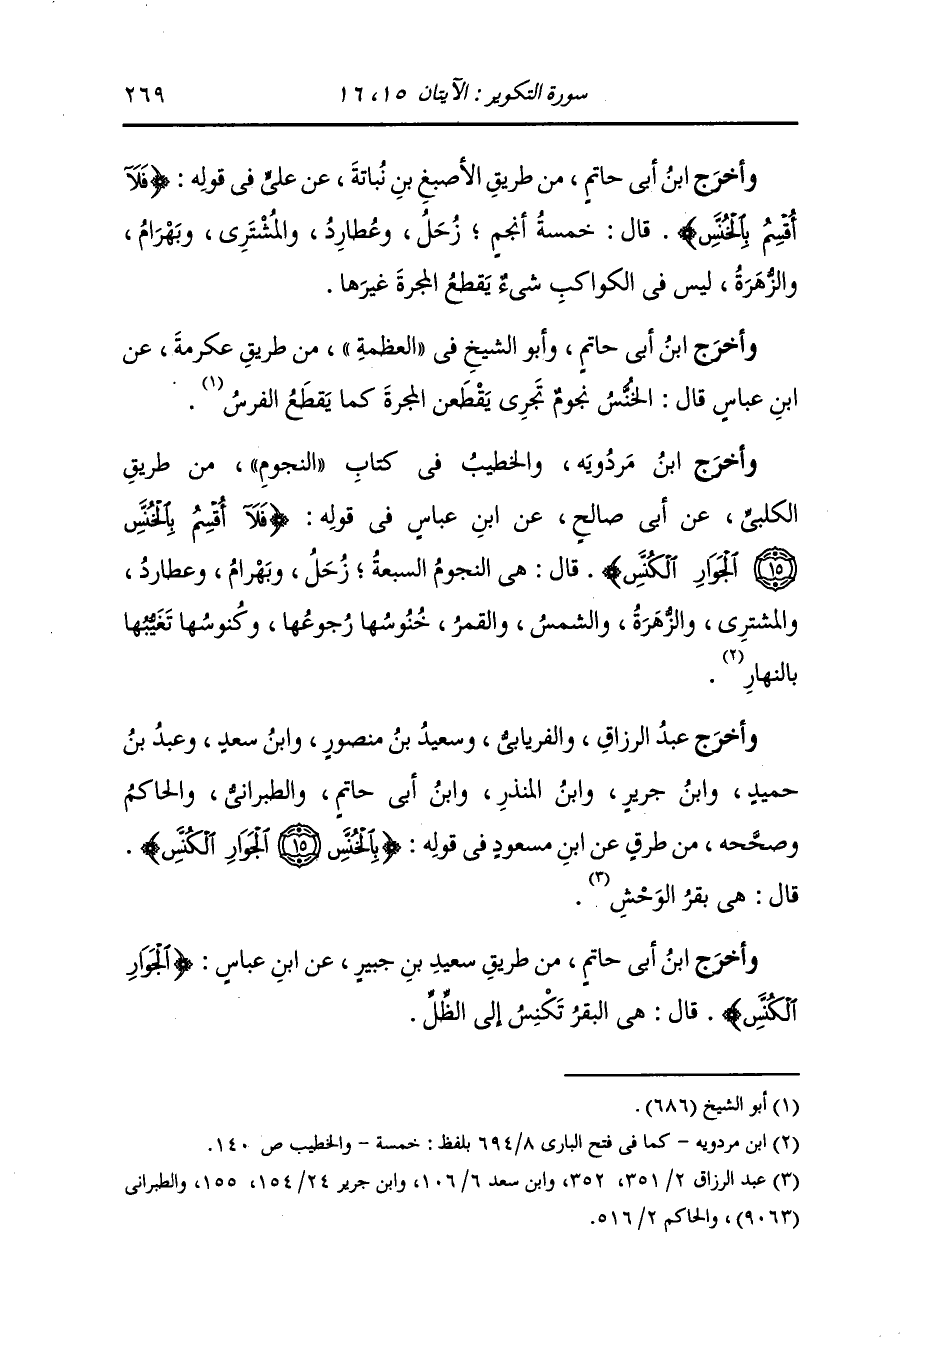 سورة التكوير : الآيتان ١٥ ، ١٦
٢٦٩
وأخرَج ابنُ أبى حاتمٍ ، من طريقِ الأصبغِ بنِ نُباتةَ ، عن علىٍّ فى قولِه : ﴿فَلَآ
أُقْسِمُ بِٱلْخُنَّسِ﴾ . قال : خمسةُ أنجمٍ ؛ زُحَلُ ، وعُطارِدُ ، والمُشْتَرِى ، وبَهْرَامُ ،
والزُّهَرَةُ ، ليس فى الكواكبِ شىءٌ يَقطعُ المجرةَ غيرَها .
وأخرَج ابنُ أبى حاتمٍ ، وأبو الشيخِ فى «العظمةِ» ، من طريقِ عكرمةَ ، عن
ابنِ عباسٍ قال : الخُنَّسُ نجومٌ تَجرِى يَقْطَعن المجرةَ كما يَقطَعُ الفرسُ(١) .
وأخرَج ابنُ مَردُويَه ، والخطيبُ فى كتابِ «النجومِ» ، من طريقِ
الكلبىِّ ، عن أبى صالحٍ ، عن ابنِ عباسٍ فى قولِه : ﴿فَلَآ أُقْسِمُ بِٱلْخُنَّسِ
(١٥) ٱلْجَوَارِ ٱلْكُنَّسِ﴾ . قال : هى النجومُ السبعةُ ؛ زُحَلُ ، وبَهْرامُ ، وعطاردُ ،
والمشترِى ، والزُّهَرَةُ ، والشمسُ ، والقمرُ ، خُنُوسُها رُجوعُها ، وكُنوسُها تَغَيُّبُها
بالنهارِ(٢) .
وأخرَج عبدُ الرزاقِ ، والفريابىُّ ، وسعيدُ بنُ منصورٍ ، وابنُ سعدٍ ، وعبدُ بنُ
حميدٍ ، وابنُ جريرٍ ، وابنُ المنذرِ ، وابنُ أبى حاتمٍ ، والطبرانىُّ ، والحاكمُ
وصحَّحه ، من طرقٍ عن ابنِ مسعودٍ فى قولِه : ﴿بِٱلْخُنَّسِ (١٥) ٱلْجَوَارِ ٱلْكُنَّسِ﴾ .
قال : هى بقرُ الوَحْشِ(٣) .
وأخرَج ابنُ أبى حاتمٍ ، من طريقِ سعيدِ بنِ جبيرٍ ، عن ابنِ عباسٍ : ﴿ٱلْجَوَارِ
ٱلْكُنَّسِ﴾ . قال : هى البقرُ تَكْنِسُ إلى الظِّلِّ .
(١) أبو الشيخ (٦٨٦) .
(٢) ابن مردويه – كما فى فتح البارى ٦٩٤/٨ بلفظ : خمسة – والخطيب ص ١٤٠.
(٣) عبد الرزاق ٢/ ٣٥١، ٣٥٢، وابن سعد ٦/ ١٠٦، وابن جرير ٢٤/ ١٥٤، ١٥٥، والطبرانى
(٩٠٦٣) ، والحاكم ٢/ ٥١٦.